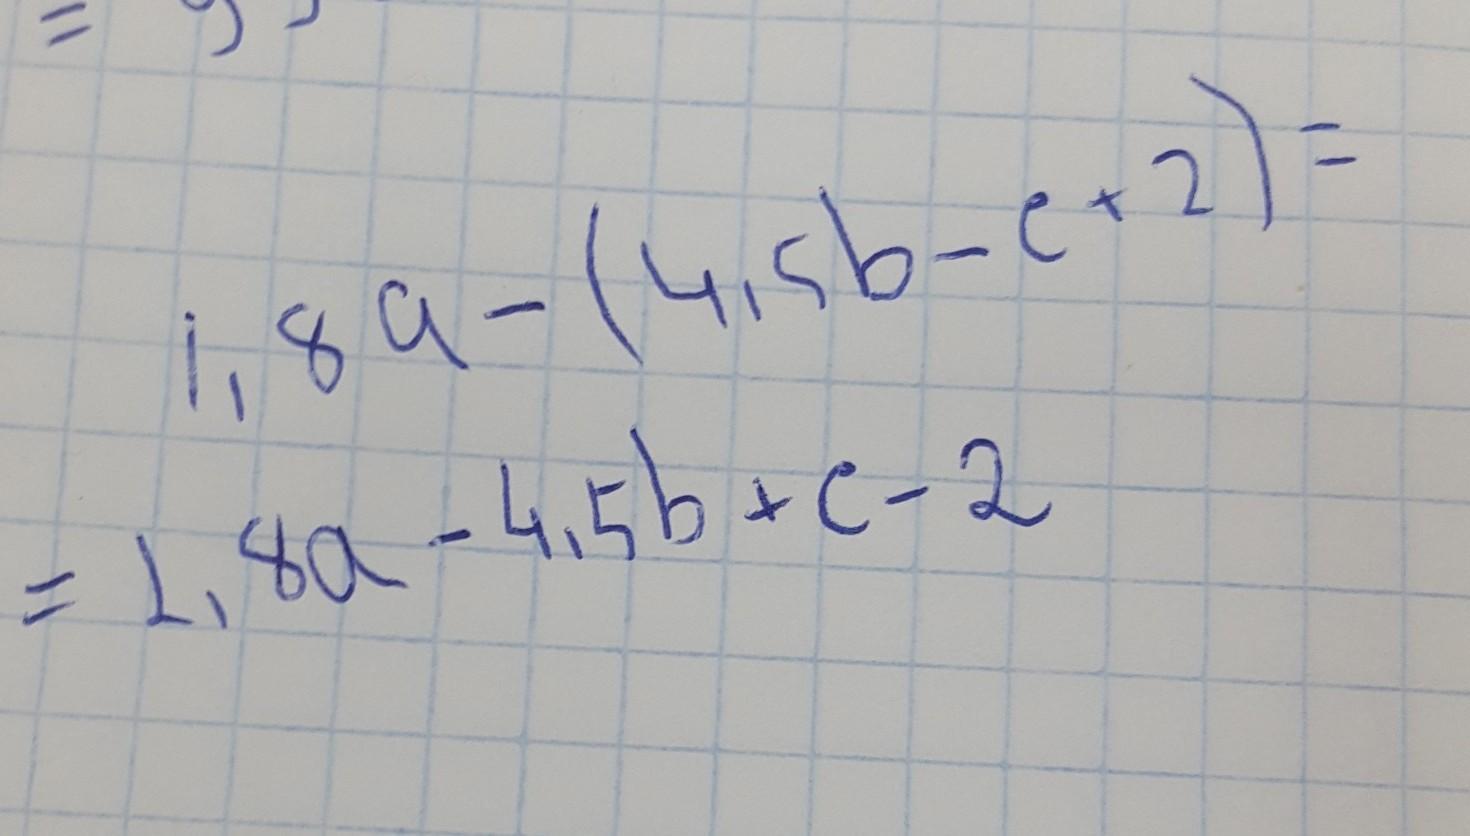 1,8a - (4,5b - c + 2) =
= 1,8a - 4,5b + c - 2